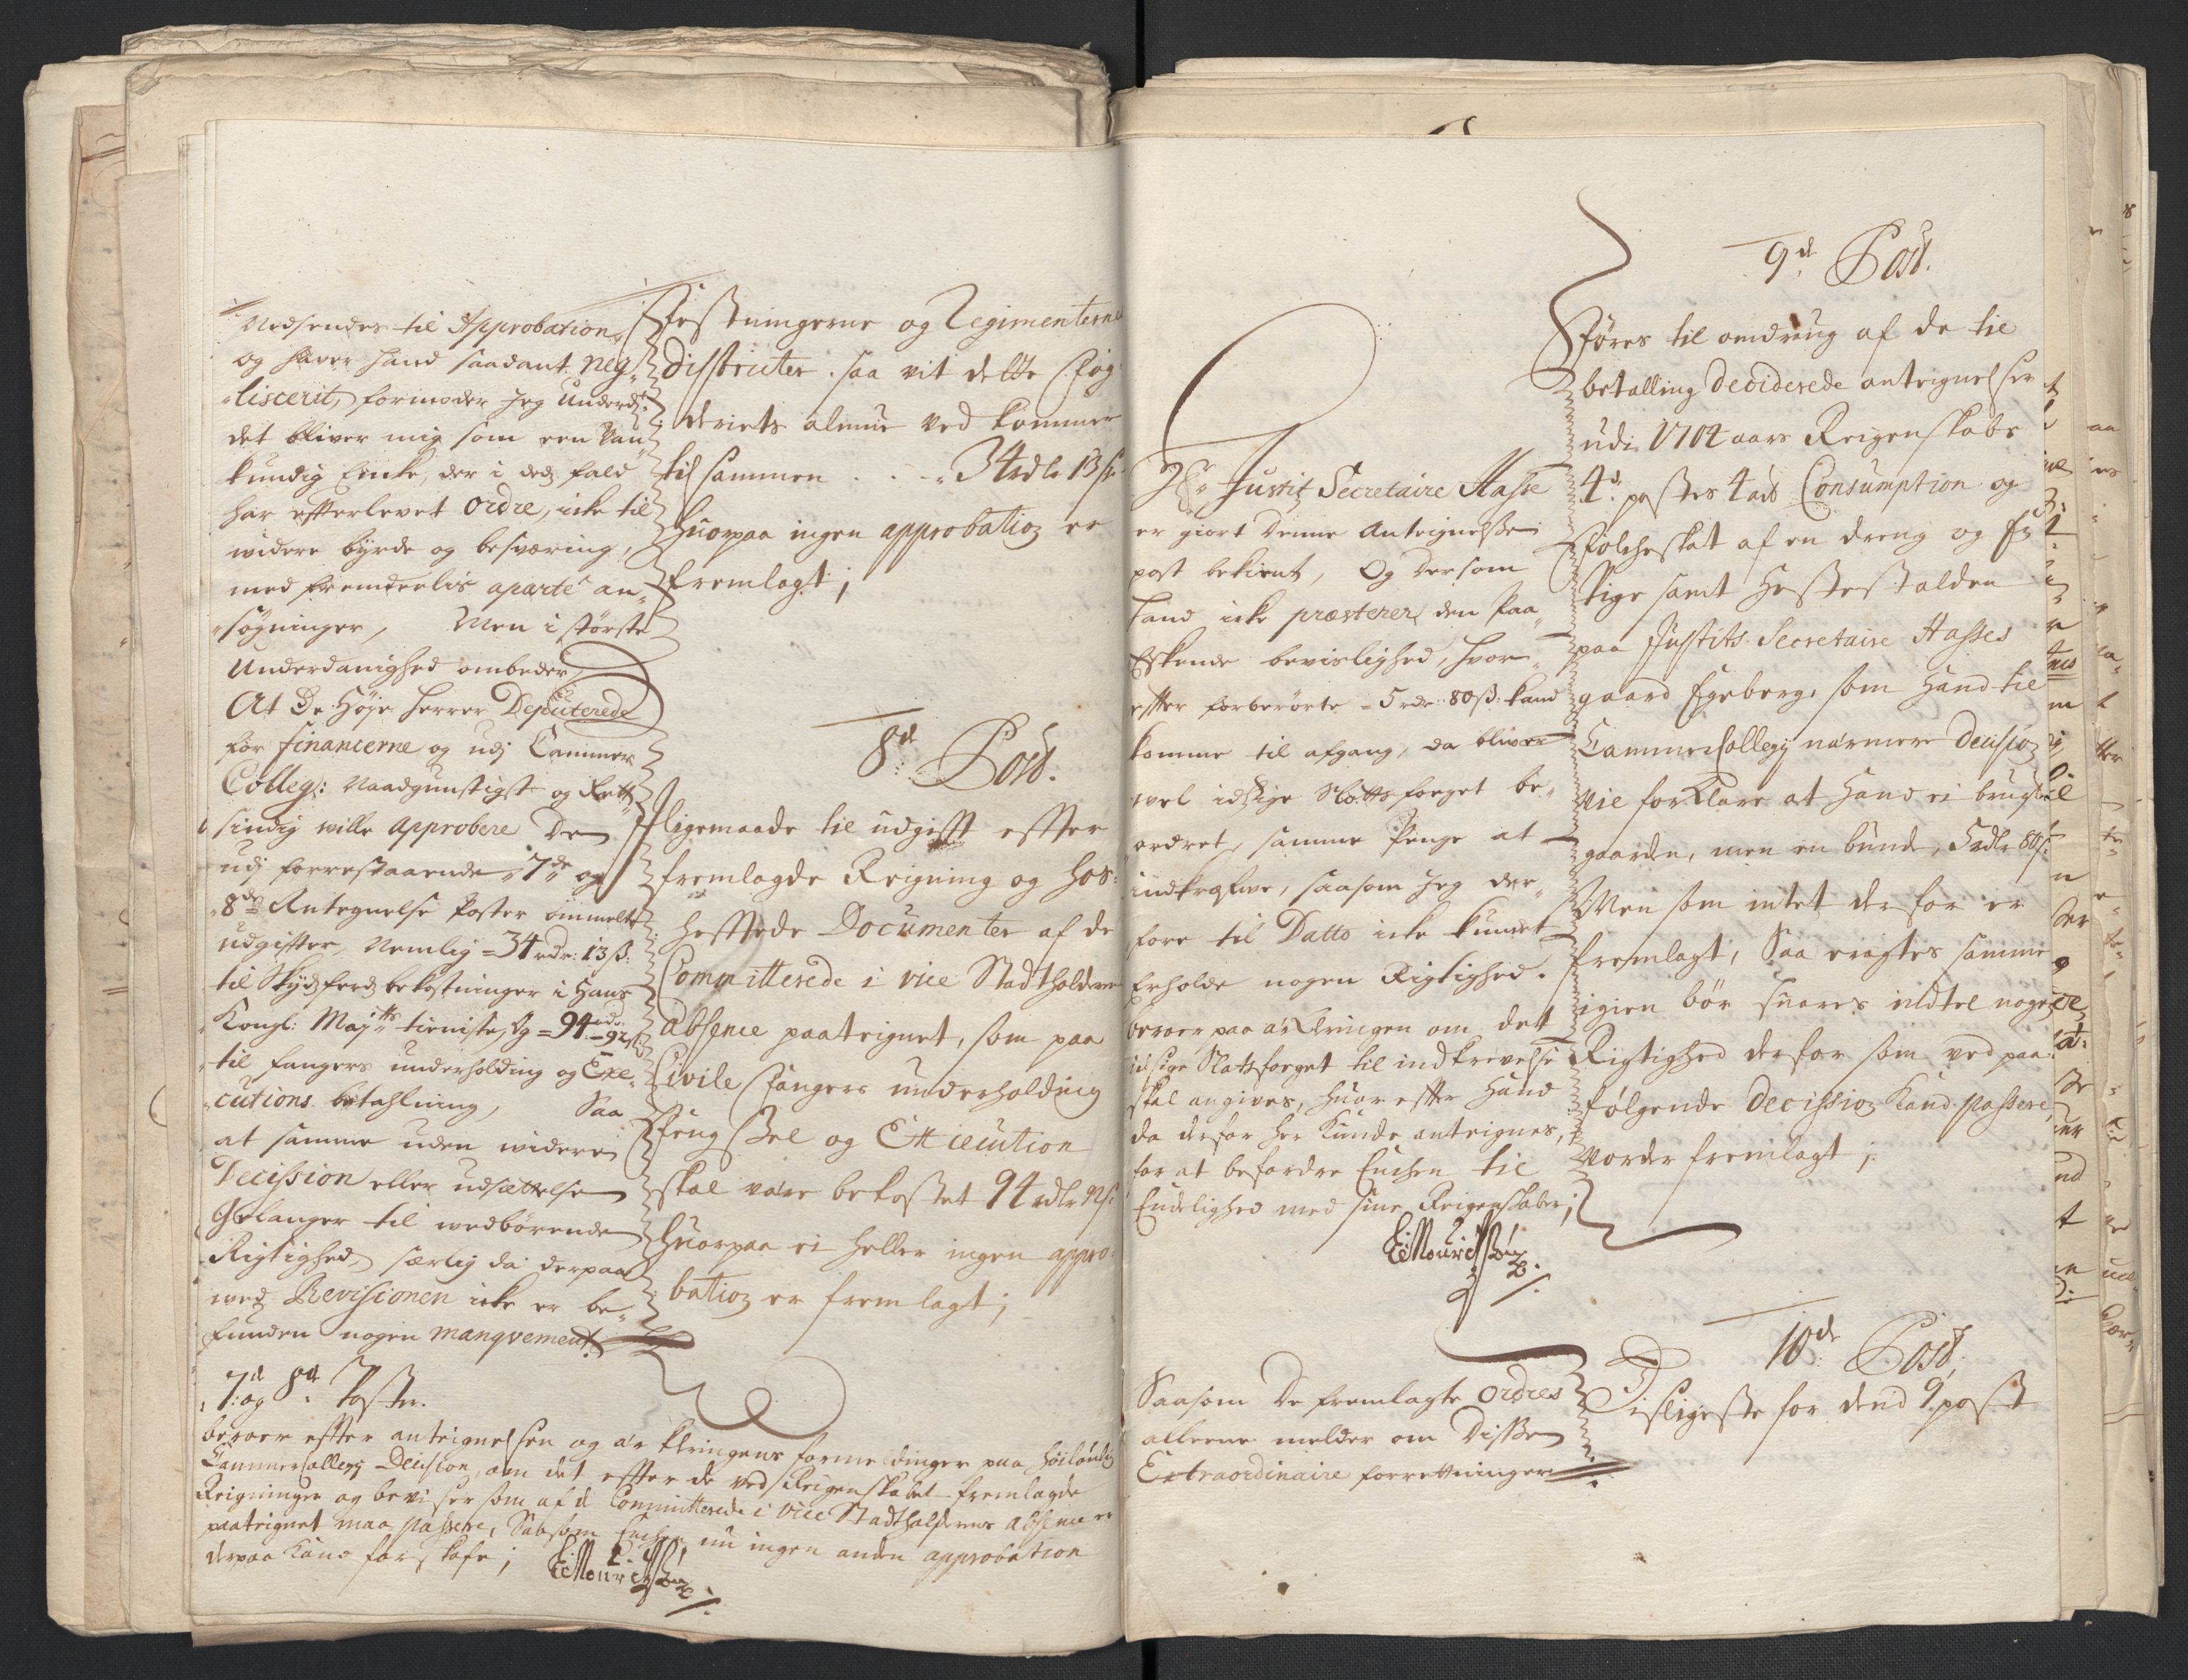 Nedsendes til Approbation,
og haver hand saadant neg-
liscerit, formoder jeg underd:
det bliver mig som een Van
kundig Encke, der i dedz fald
har efterlevet ordre, icke til
widere byrde og besværing,
med fremdeelis aparte an-
søgninger, Men i største
Underdanighed ombeder
At De Høje Herrer Deputerede
for Financerne og udj Cammer
Colleg: Naadgunstigst og Rett
sindig wille approbere De
udj forrestaaende 7de og
8de Antegnelse Poster ommelte
udgifter, Nemlig = 34 rdr: 13 ß:
til Skydtsferdz bekostninger i Hans
Kongl: Majtts tieniste, og = 94 rdr 92 ß
til fangers underholding og Exe-
cutions betahlning, Saa
at samme uden widere
Decission eller udsættelse
Gelanger til wedbørende
Rigtighed, særlig da derpaa
wed Revisionen icke er be-
funden nogen manqvement.
7de og 8de Poster.
beroer effter anteignelsen og ærklæringens formeldinger paa høilovlig
Kammer Collegij Decision, om det effter de ved Reigenskabet fremlagde
Reigninger og beviser som af de Committerede i Vice Stadtholderens absence er
paateignet maa passere, Saasom Enchen nu ingen anden approbation
derpaa kand forskafe;
Festningerne og Regimenterne
districter. saa vit dette fog
deriets almue ved kommer
til sammen . . . 34 rdlr 13 ß
huorpaa ingen approbation er
fremlagt;
8de Post.
ligemaade til udgifft effter
fremlagde Reigning og hos-
hefftede Documenter af de
Committerede i vice Stadtholderens
absence paateignet, som paa
Civile Fangers underholding
Fengssel og Execution
skal være bekostet 94 rdlr 92 ß:
huorpaa ei heller ingen appro-
bation er fremlagt;
Hr Justitz Secretaire Hasse
er giort denne Anteignelse
post bekient, Og dersom
hand icke præsterer den Paa
Eskende bevislighed, hvor-
effter forberørte = 5 rdr: 80 ß: kand
komme til afgang, da bliver
wel idtzige Slottsforget be-
ordret, samme Penge at
indkræfwe, saasom jeg der-
fore til Datto icke kundet
Erholde nogen Rigtighed.
beroer paa ærklæringen om det
idtzige Slottsforget til indkrevelse
skal angives, huor effter Hand
da derfor her kunde anteignes,
for at befordre Enchen til
Endelighed med sine Reigenskaber;
Saasom De fremlagte ordres
alleene melder om Disse
Extraordinaire forrettninger
9de Post.
Føres til omdraug af de til
betalling deciderede anteignelser
udi 1704 aars Reigenskabs
4de postes 4 aars Consumption og
Folcheskat af en dreng og En
Pige samt Hesteskatden
paa Justits Secretaire Hasses
gaard Egeberg, som Hand til
Cammer Collegij nærmere Decision
vil forklare at Hand ei bruger
gaarden, men en bunde, 5 rdlr 80 ß:
Men som intet derfor er
fremlagt, Saa eragtes samme
igien bør suares indtil nogen
Rigtighed derfor som ved paa-
følgende Decission kand passere,
vorder fremlagt;
10de Post.
Disligeste for dend 9. post